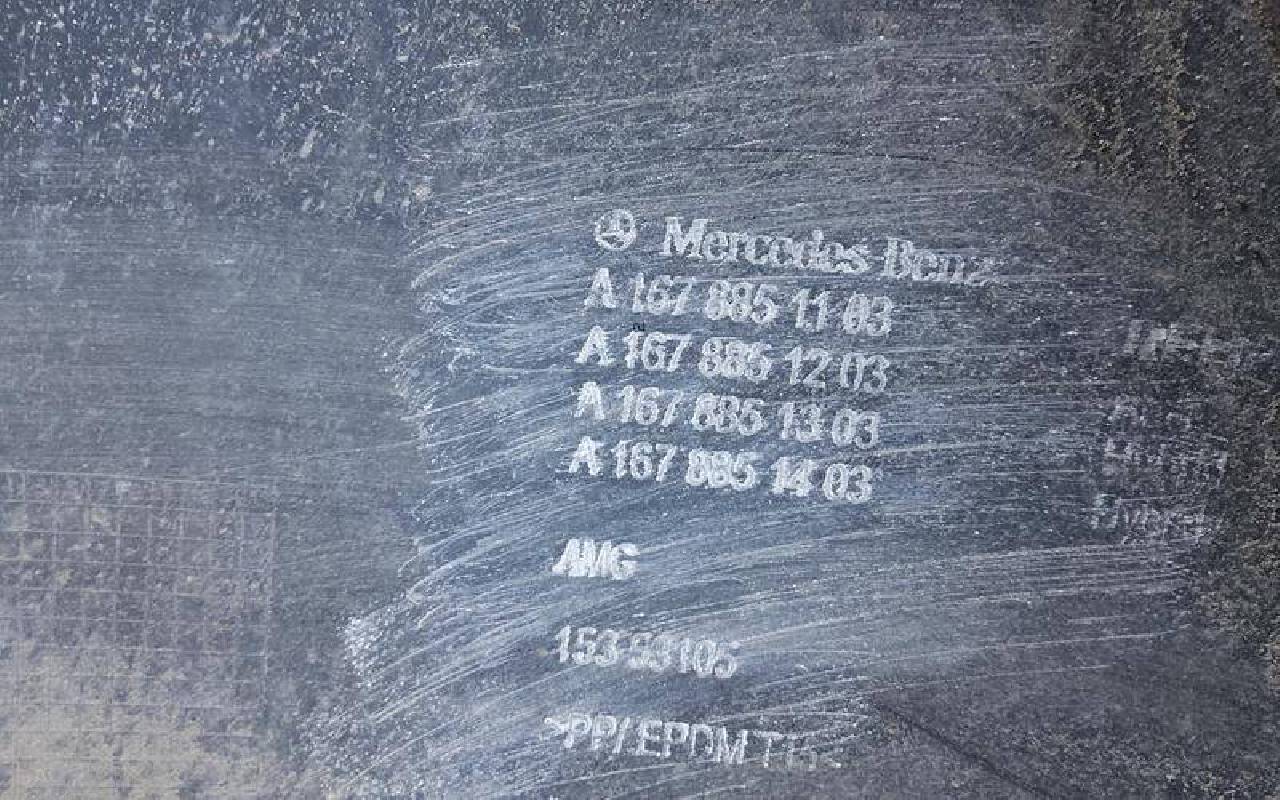 Mercedes-Benz
A 167 885 11 03
A 167 885 12 03
A 167 885 13 03
A 167 885 14 03
AMG
153 93105
>PP/EPDM